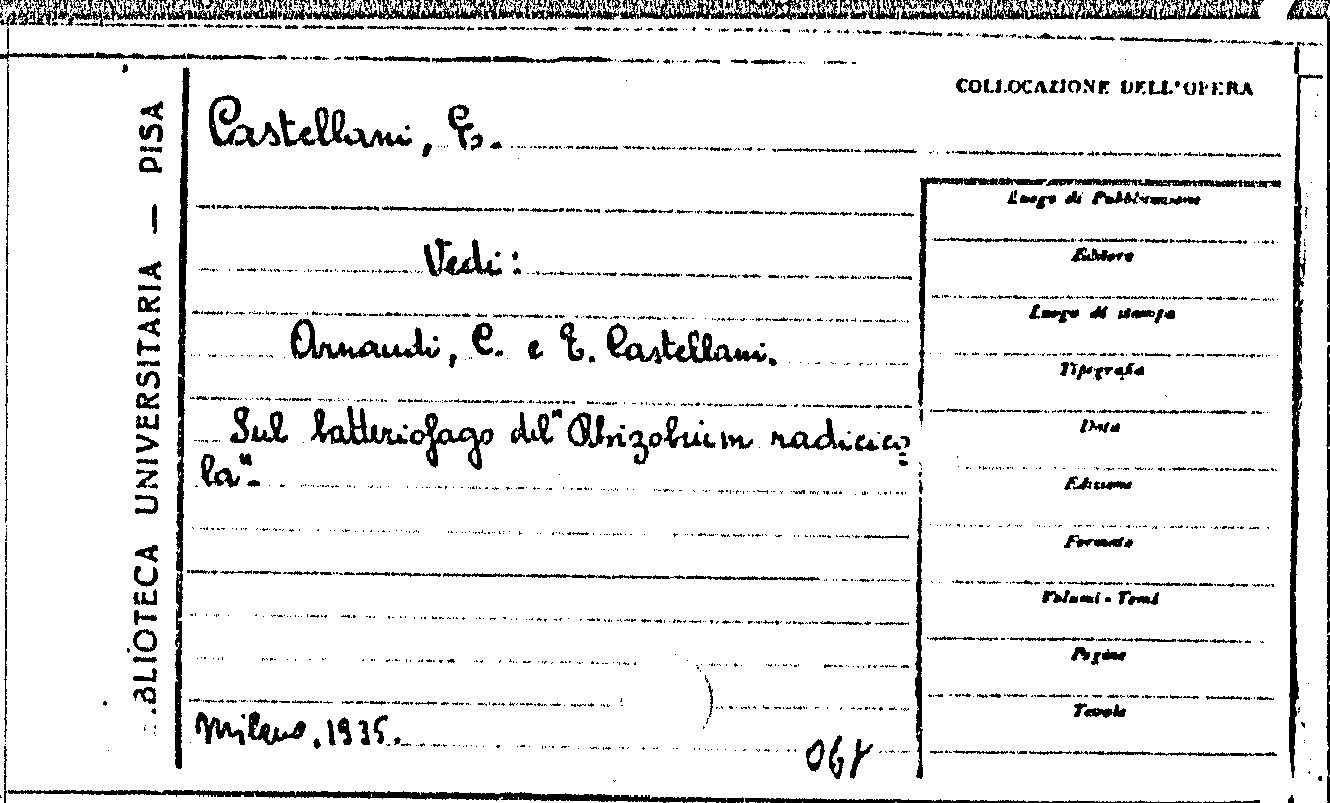 BLIOTECA UNIVERSITARIA — PISA
COLLOCAZIONE DELL'OPERA
Castellani, E.
Vedi:
Arnaudi, C. e E. Castellani.
Sul batteriofago del "Rhizobium radicico=
la".
Milano, 1935.
Luogo di Pubblicazione
Editore
Luogo di stampa
Tipografia
Data
Edizione
Formato
Volumi - Tomi
Pagine
Tavole